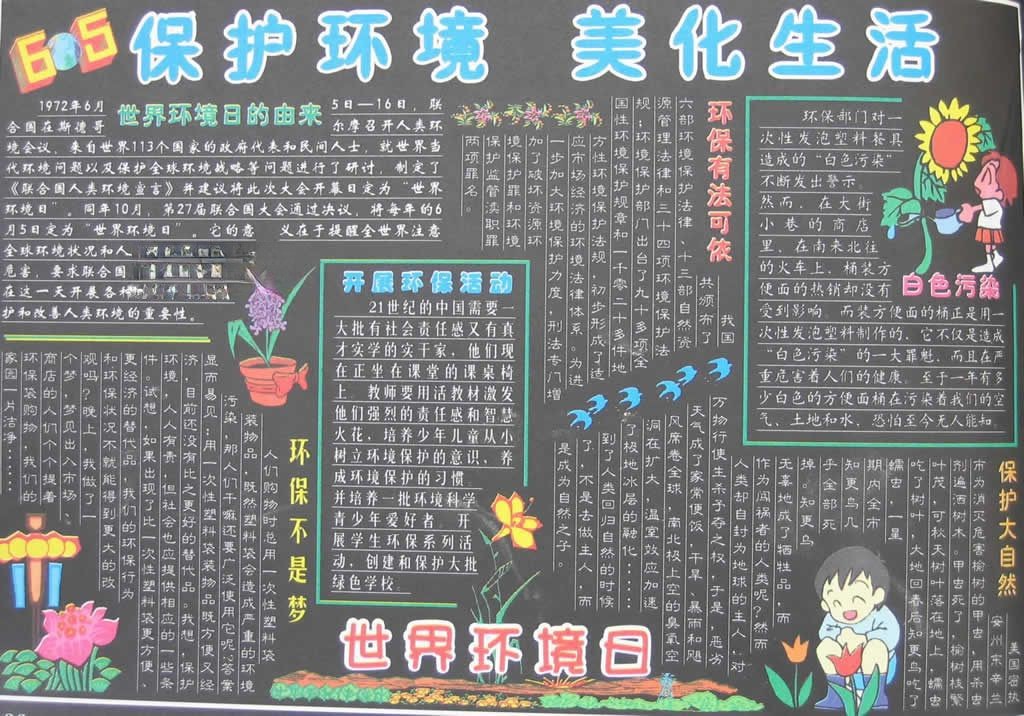 605
保护环境 美化生活
世界环境日的由来
1972年6月5日—16日，联
合国在斯德哥尔摩召开人类环
境会议，来自世界113个国家的政府代表和民间人士，就世界当
代环境问题以及保护全球环境战略等问题进行了研讨，制定了
《联合国人类环境宣言》并建议将此次大会开幕日定为“世界
环境日”。同年10月，第27届联合国大会通过决议，将每年的6
月5日定为“世界环境日”。它的意义在于提醒全世界注意
全球环境状况和人
危害，要求联合国
在这一天开展各种
护和改善人类环境的重要性。
环保有法可依
我国
共颁布了
六部环境保护法律、十三部自然资
源管理法律和三十四项环境保护法
规；环境保护部门出台了九十多项全
国性环境保护规章和一千零二十多件地
方性环境保护法规，初步形成了适
应市场经济的环境法律体系。为进
一步加大环境保护力度，刑法专门增
加了破坏资源环
境保护罪和环境
保护监管渎职罪
两项罪名。
环保部门对一
次性发泡塑料餐具
造成的“白色污染”
不断发出警示。
然而，在大街
小巷的商店
里，在南来北往
的火车上，桶装方
便面的热销却没有
受到影响。而装方便面的桶正是用一
次性发泡塑料制作的，它不仅是造成
“白色污染”的一大罪魁，而且在严
重危害着人们的健康。至于一年有多
少白色的方便面桶在污染着我们的空
气、土地和水，恐怕至今无人能知。
白色污染
开展环保活动
21世纪的中国需要一
大批有社会责任感又有真
才实学的实干家，他们现
在正坐在课堂的课桌椅
上。教师要用活教材激发
他们强烈的责任感和智慧
火花，培养少年儿童从小
树立环境保护的意识，养
成环境保护的习惯。
并培养一批环境科学
青少年爱好者，开
展学生环保系列活
动，创建和保护大批
绿色学校。
环保不是梦
人们购物时总用一次性塑料袋
装物品，既然塑料袋会造成严重的环境
污染，那人们干嘛还要广泛使用它呢？答案
显而易见：用一次性塑料袋装物品既方便又经
济，目前还没有比之更好的替代品。我想，保护
环境，人人有责，但社会也应提供相应的一些条
件。试想，如果出现了比一次性塑料袋更方便、
更经济的替代品，我们的环保行为
和环保状况不就能得到更大的改
观吗？晚上，我做了一
个梦，梦见出入市场、
商店的人们个个提着
环保袋购物，我们的
家园一片洁净……
保护大自然
美国密执
安州东辛兰
市为消灭危害榆树的甲虫，用杀虫
剂遍洒树木。甲虫死了，榆树枝繁
叶茂，可秋天树叶落在地上，蠕虫
吃了树叶，大地回春后知更鸟吃了
蠕虫，一星
期内全市
知更鸟几
乎全部死
掉。知更鸟
无辜地成了牺牲品，而
作为闯祸者的人类呢？然而
人类却自封为地球的主人，对
万物行使生杀予夺之权，于是，恶劣
天气成了家常便饭，干旱、暴雨和飓
风席卷全球，南北极上空的臭氧空
洞在扩大，温室效应加速
了极地冰层的融化……
到了人类回归自然的时候
了，不是去做主人，而
是成为自然之子。
世界环境日